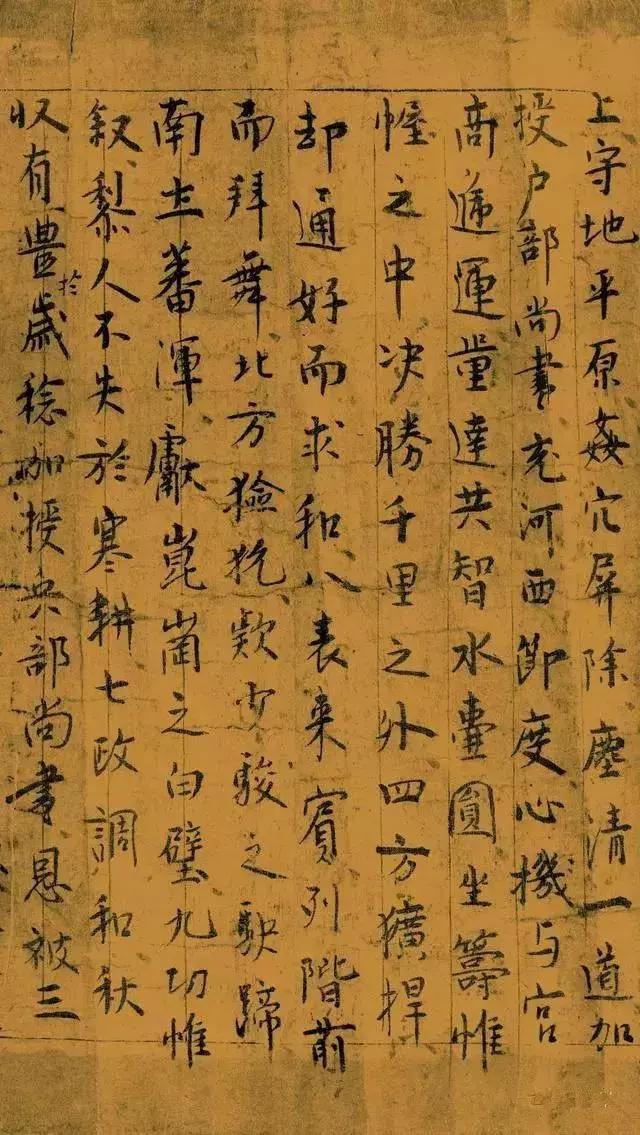 上守地平原姦宄屏除塵清一道加
授户部尚書充河西節度心機与宫
商遞運量達共智水壷圓坐籌帷
幄之中决勝千里之外四方獷捍
却通好而求和八表来賓列階前
而拜舞北方獫狁欵少駿之駃蹄
南土蕃渾獻崑崗之白璧九功惟
叙黎人不失於寒耕七政調和秋
収有豊於歳稔加授兵部尚書恩被三